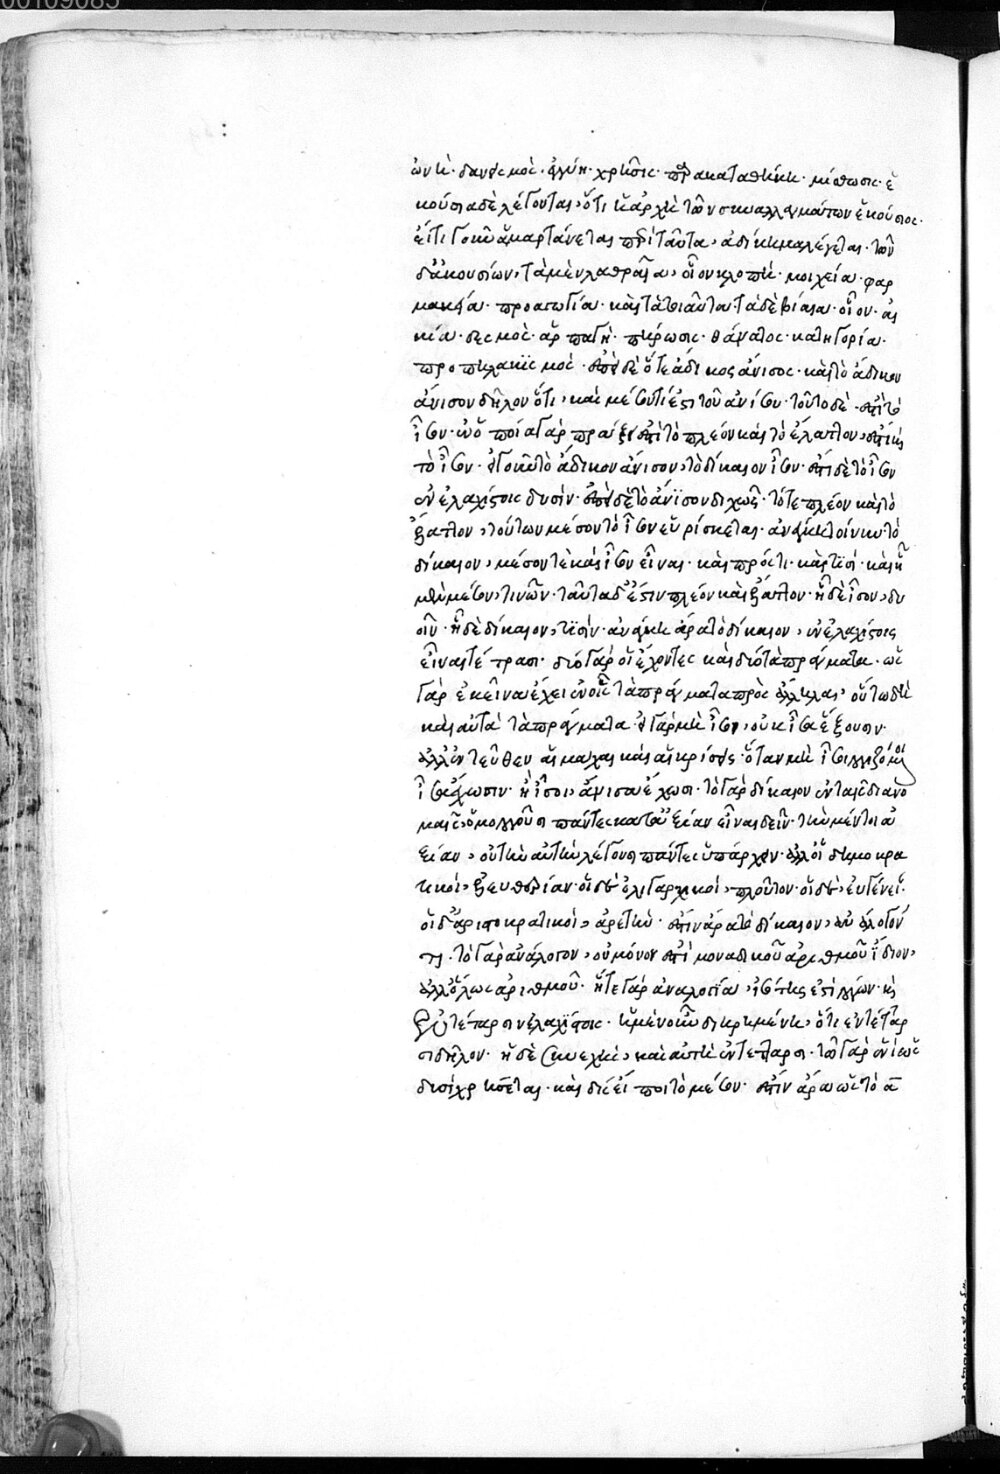 ωνὴ· δανεισμὸς· ἐγγύη· χρῆσις· παρακαταθήκη· μίσθωσις· ἑ
κούσια δὲ λέγονται, ὅτι ἡ ἀρχὴ τῶν συναλλαγμάτων ἑκούσιος·
εἴ τι γοῦν ἁμαρτάνεται περὶ ταῦτα, ἀδίκημα λέγεται· τῶν
δ' ἀκουσίων, τὰ μὲν λαθραῖα, οἷον κλοπὴ· μοιχεία· φαρ
μακεία· προαγωγία· καὶ τὰ τοιαῦτα· τὰ δὲ βίαια· οἷον· αἰ
κία· δεσμὸς· ἁρπαγὴ· πήρωσις· θάνατος· κατηγορία·
προπηλακισμός· ἐπεὶ δὲ ὅ τε ἄδικος ἄνισος· καὶ τὸ ἄδικον
ἄνισον δῆλον ὅτι, καὶ μέσον τί ἐστι τοῦ ἀνίσου· τοῦτο δὲ ἐστὶ τὸ
ἴσον· ἐν ὁποίᾳ γὰρ πράξει ἐστὶ τὸ πλέον καὶ τὸ ἔλαττον, ἐστὶ καὶ
τὸ ἴσον· εἰ γοῦν τὸ ἄδικον ἄνισον, τὸ δίκαιον ἴσον· ἐπεὶ δὲ τὸ ἴσον
ἐν ἐλαχίστοις δυσίν· ἐπεὶ δὲ τὸ ἄνισον διχῶς· τό τε πλέον καὶ τὸ
ἔλαττον, τούτων μέσον τὸ ἴσον εὑρίσκεται· ἀνάγκη τοίνυν τὸ
δίκαιον, μέσον τὲ καὶ ἴσον εἶναι· καὶ πρός τι· καὶ τισί· καὶ ᾗ
μὲν μέσον, τινῶν· ταῦτα δ' ἐστιν πλέον καὶ ἔλαττον· ᾗ δὲ ἴσον, δυ
οῖν· ᾗ δὲ δίκαιον, τισίν· ἀνάγκη ἄρα τὸ δίκαιον, ἐν ἐλαχίστοις
εἶναι τέτρασι· δύο γὰρ οἱ ἔχοντες καὶ δύο τὰ πράγματα· ὡς
γὰρ ἐκεῖνα ἔχει ἐν οἷς τὰ πράγματα πρὸς ἄλληλα, οὕτω δὴ
καὶ αὐτὰ τὰ πράγματα· εἰ γὰρ μὴ ἴσοι, οὐκ ἴσα ἕξουσιν·
ἀλλ' ἐντεῦθεν αἱ μάχαι καὶ αἱ κρίσεις· ὅταν μὴ ἴσοι λογιζόμενοι
ἴσα ἔχωσιν· ἢ ἴσοι, ἄνισα ἔχωσι· τὸ γὰρ δίκαιον ἐν ταῖς διανο
μαῖς, ὁμολογοῦσι πάντες κατ' ἀξίαν εἶναι δεῖν· τὴν μέντοι ἀ
ξίαν, οὐ τὴν αὐτὴν λέγουσι πάντες ὑπάρχειν· ἀλλ' οἱ δημοκρα
τικοὶ, ἐλευθερίαν· οἱ δὲ ὀλιγαρχικοὶ, πλοῦτον· οἱ δὲ, εὐγένειαν·
οἱ δ' ἀριστοκρατικοὶ, ἀρετὴν· ἐστὶν ἄρα τὸ δίκαιον, ἀνάλογόν
τι· τὸ γὰρ ἀνάλογον, οὐ μόνον ἐστὶ μοναδικοῦ ἀριθμοῦ ἴδιον,
ἀλλ' ὅλως ἀριθμοῦ· ἥ τε γὰρ ἀναλογία, ἰσότης ἐστὶ λόγων· καὶ
ἐν τέταρσιν ἐλαχίστοις· ἡ μὲν οὖν διῃρημένη, ὅτι ἐν τέταρ
σι δῆλον· ἡ δὲ συνεχὴς, καὶ αὐτὴ ἐν τέτταρσι· τῷ γὰρ ἑνὶ ὡς
δυσὶ χρήσεται· καὶ δὶς εἴποι τὸ μέσον· ἐστὶν ἄρα ὡς τὸ α